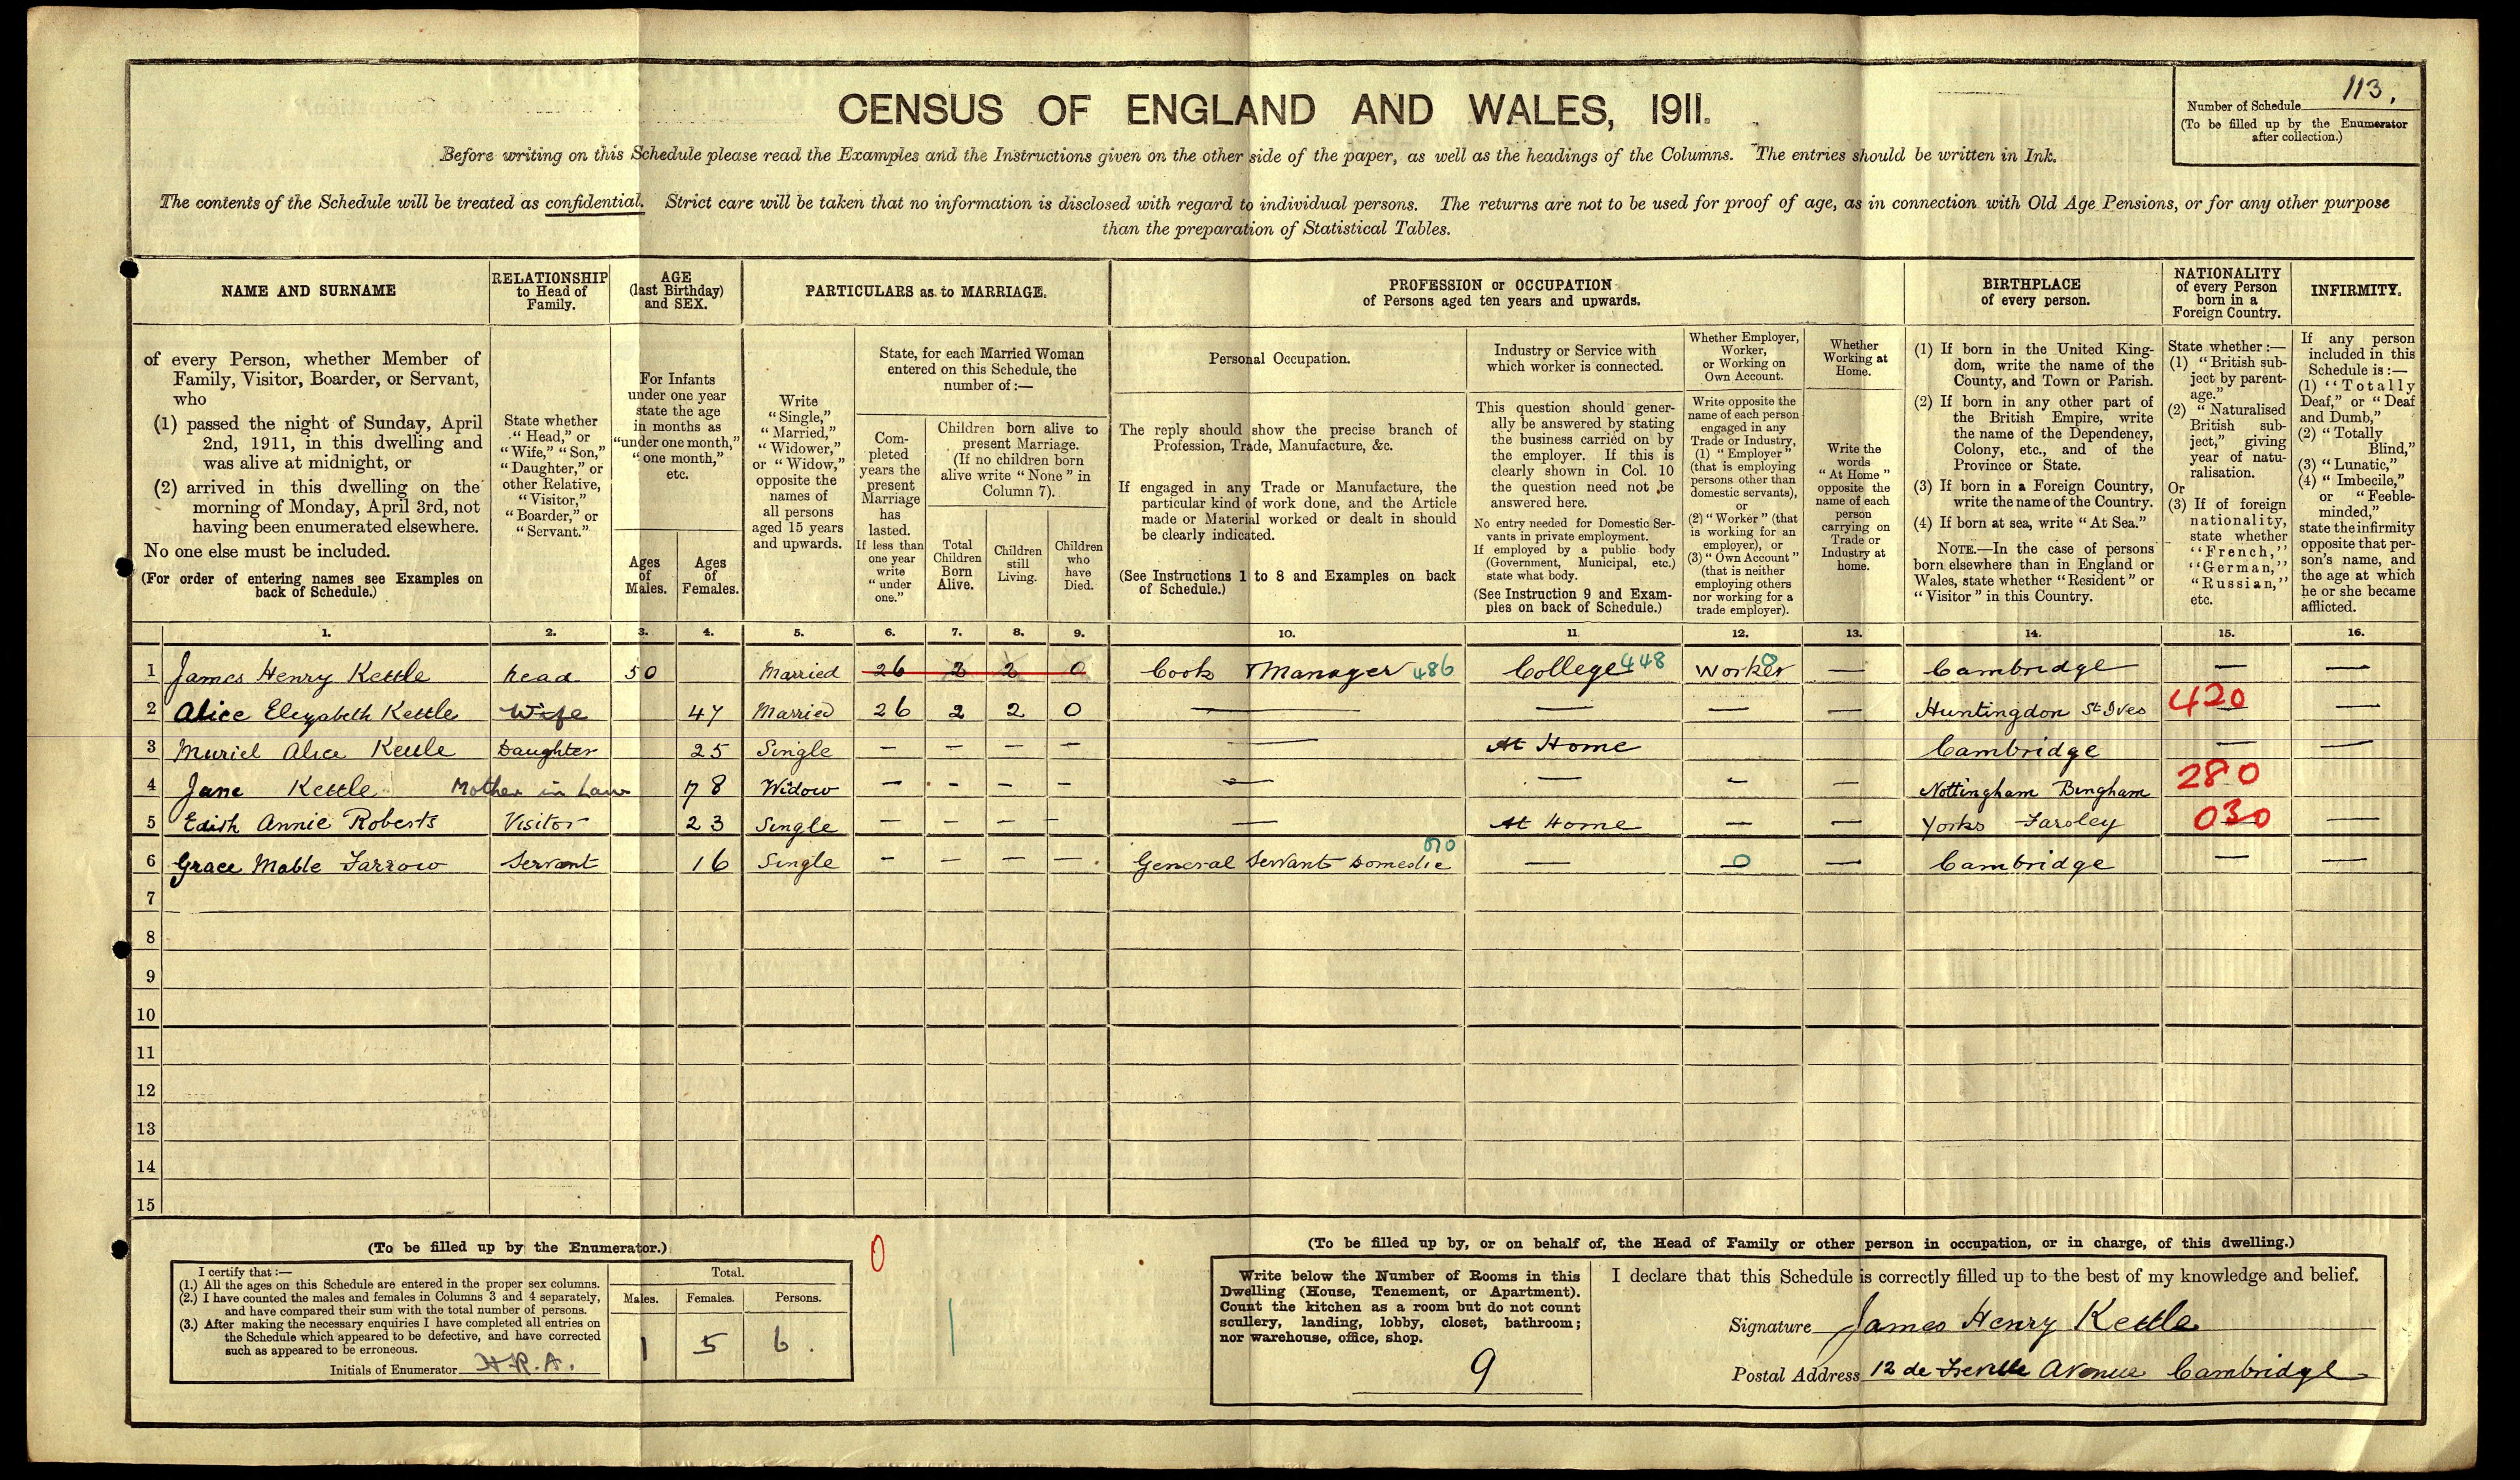 113.
Number of Schedule
(To be filled up by the Enumerator
after collection.)
CENSUS OF ENGLAND AND WALES, 1911.
Before writing on this Schedule please read the Examples and the Instructions given on the other side of the paper, as well as the headings of the Columns. The entries should be written in Ink.
The contents of the Schedule will be treated as confidential. Strict care will be taken that no information is disclosed with regard to individual persons. The returns are not to be used for proof of age, as in connection with Old Age Pensions, or for any other purpose
than the preparation of Statistical Tables.
NAME AND SURNAME
of every Person, whether Member of
Family, Visitor, Boarder, or Servant,
who
(1) passed the night of Sunday, April
2nd, 1911, in this dwelling and
was alive at midnight, or
(2) arrived in this dwelling on the
morning of Monday, April 3rd, not
having been enumerated elsewhere.
No one else must be included.
(For order of entering names see Examples on
back of Schedule.)
RELATIONSHIP
to Head of
Family.
State whether
"Head," or
"Wife," "Son,"
"Daughter," or
other Relative,
"Visitor,"
"Boarder," or
"Servant."
AGE
(last Birthday)
and SEX.
For Infants
under one year
state the age
in months as
"under one month,"
"one month,"
etc.
Ages
of
Males.
Ages
of
Females.
PARTICULARS as to MARRIAGE.
Write
"Single,"
"Married,"
"Widower,"
or "Widow,"
opposite the
names of
all persons
aged 15 years
and upwards.
State, for each Married Woman
entered on this Schedule, the
number of:—
Com-
pleted
years the
present
Marriage
has
lasted.
If less than
one year
write
"under
one."
Children born alive to
present Marriage.
(If no children born
alive write "None" in
Column 7).
Total
Children
Born
Alive.
Children
still
Living.
Children
who
have
Died.
PROFESSION or OCCUPATION
of Persons aged ten years and upwards.
Personal Occupation.
The reply should show the precise branch of
Profession, Trade, Manufacture, &c.
If engaged in any Trade or Manufacture, the
particular kind of work done, and the Article
made or Material worked or dealt in should
be clearly indicated.
(See Instructions 1 to 8 and Examples on back
of Schedule.)
Industry or Service with
which worker is connected.
This question should gener-
ally be answered by stating
the business carried on by
the employer. If this is
clearly shown in Col. 10
the question need not be
answered here.
No entry needed for Domestic Ser-
vants in private employment.
If employed by a public body
(Government, Municipal, etc.)
state what body.
(See Instruction 9 and Exam-
ples on back of Schedule.)
Whether Employer,
Worker,
or Working on
Own Account.
Write opposite the
name of each person
engaged in any
Trade or Industry,
(1) "Employer"
(that is employing
persons other than
domestic servants),
or
(2) "Worker" (that
is working for an
employer), or
(3) "Own Account"
(that is neither
employing others
nor working for a
trade employer).
Whether
Working at
Home.
Write the
words
"At Home"
opposite the
name of each
person
carrying on
Trade or
Industry at
home.
BIRTHPLACE
of every person.
(1) If born in the United King-
dom, write the name of the
County, and Town or Parish.
(2) If born in any other part of
the British Empire, write
the name of the Dependency,
Colony, etc., and of the
Province or State.
(3) If born in a Foreign Country,
write the name of the Country.
(4) If born at sea, write "At Sea."
NOTE.—In the case of persons
born elsewhere than in England or
Wales, state whether "Resident" or
"Visitor" in this Country.
NATIONALITY
of every Person
born in a
Foreign Country.
State whether:—
(1) "British sub-
ject by parent-
age."
(2) "Naturalised
British sub-
ject," giving
year of natu-
ralisation.
Or
(3) If of foreign
nationality,
state whether
"French,"
"German,"
"Russian,"
etc.
INFIRMITY.
If any person
included in this
Schedule is:—
(1) "Totally
Deaf," or "Deaf
and Dumb,"
(2) "Totally
Blind,"
(3) "Lunatic,"
(4) "Imbecile,"
or "Feeble-
minded,"
state the infirmity
opposite that per-
son's name, and
the age at which
he or she became
afflicted.
1. 2. 3. 4. 5. 6. 7. 8. 9. 10. 11. 12. 13. 14. 15. 16.
1 James Henry Kettle head 50 Married 26 2 2 0 Cook & Manager 486 College 448 Worker 0 — Cambridge — —
2 Alice Elezabeth Kettle Wife 47 Married 26 2 2 0 — — — — Huntingdon St Ives 420 — —
3 Muriel Alice Kettle Daughter 25 Single — — — — — At Home Cambridge — —
4 Jane Kettle Mother in Law 78 Widow — — — — — — — — Nottingham Bingham 280
5 Edith Annie Roberts Visitor 23 Single — — — — — At Home — — Yorks Farsley 030 —
6 Grace Mable Farrow Servant 16 Single — — — — General Servant Domestic 070 — 0 — Cambridge — —
7
8
9
10
11
12
13
14
15
(To be filled up by the Enumerator.)
I certify that:—
(1.) All the ages on this Schedule are entered in the proper sex columns.
(2.) I have counted the males and females in Columns 3 and 4 separately,
and have compared their sum with the total number of persons.
(3.) After making the necessary enquiries I have completed all entries on
the Schedule which appeared to be defective, and have corrected
such as appeared to be erroneous.
Initials of Enumerator H.R.A.
Total.
Males. Females. Persons.
1 5 6.
0
(To be filled up by, or on behalf of, the Head of Family or other person in occupation, or in charge, of this dwelling.)
Write below the Number of Rooms in this
Dwelling (House, Tenement, or Apartment).
Count the kitchen as a room but do not count
scullery, landing, lobby, closet, bathroom;
nor warehouse, office, shop.
9
I declare that this Schedule is correctly filled up to the best of my knowledge and belief.
Signature James Henry Kettle
Postal Address 12 de Freville Avenue Cambridge